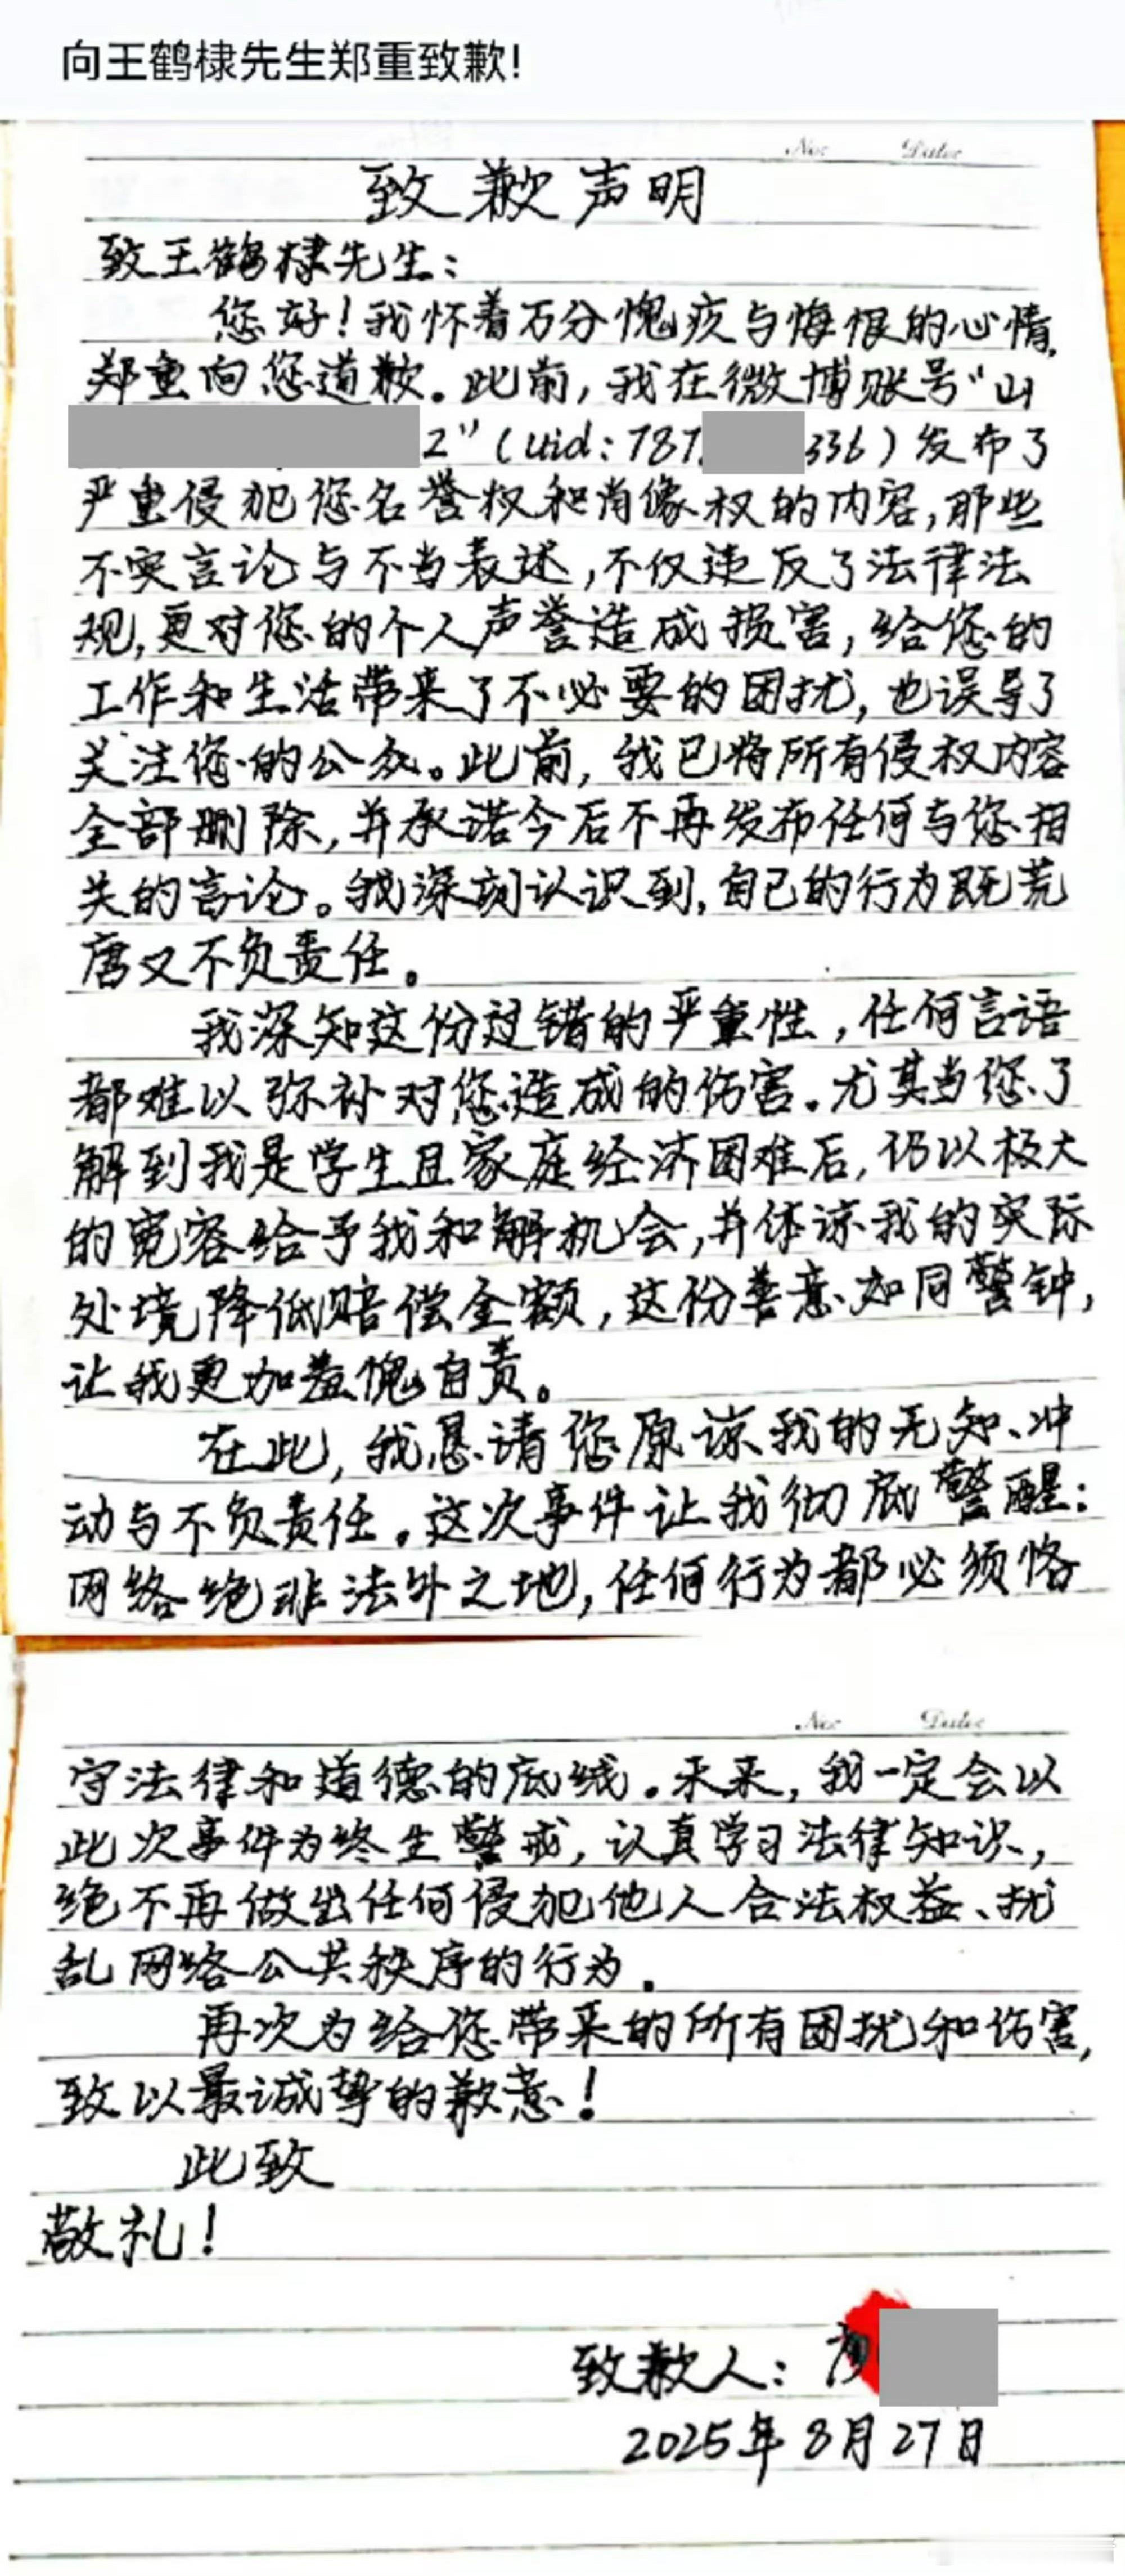 向王鹤棣先生郑重致歉!
No:    Date:
致歉声明
致王鹤棣先生:
您好!我怀着万分愧疚与悔恨的心情,
郑重向您道歉。此前,我在微博账号“山
2”(uid:787.336)发布了
严重侵犯您名誉权和肖像权的内容,那些
不实言论与不当表述,不仅违反了法律法
规,更对您的个人声誉造成损害,给您的
工作和生活带来了不必要的困扰,也误导了
关注您的公众。此前,我已将所有侵权内容
全部删除,并承诺今后不再发布任何与您相
关的言论。我深刻认识到,自己的行为既荒
唐又不负责任。
我深知这份过错的严重性,任何言语
都难以弥补对您造成的伤害。尤其当您了
解到我是学生且家庭经济困难后,仍以极大
的宽容给予我和解机会,并体谅我的实际
处境降低赔偿金额,这份善意如同警钟,
让我更加羞愧自责。
在此,我恳请您原谅我的无知、冲
动与不负责任。这次事件让我彻底警醒:
网络绝非法外之地,任何行为都必须恪
No:    Date:
守法律和道德的底线。未来,我一定会以
此次事件为终生警戒,认真学习法律知识,
绝不再做出任何侵犯他人合法权益、扰
乱网络公共秩序的行为.
再次为给您带来的所有困扰和伤害,
致以最诚挚的歉意!
此致
敬礼!
致歉人:
2025年8月27日